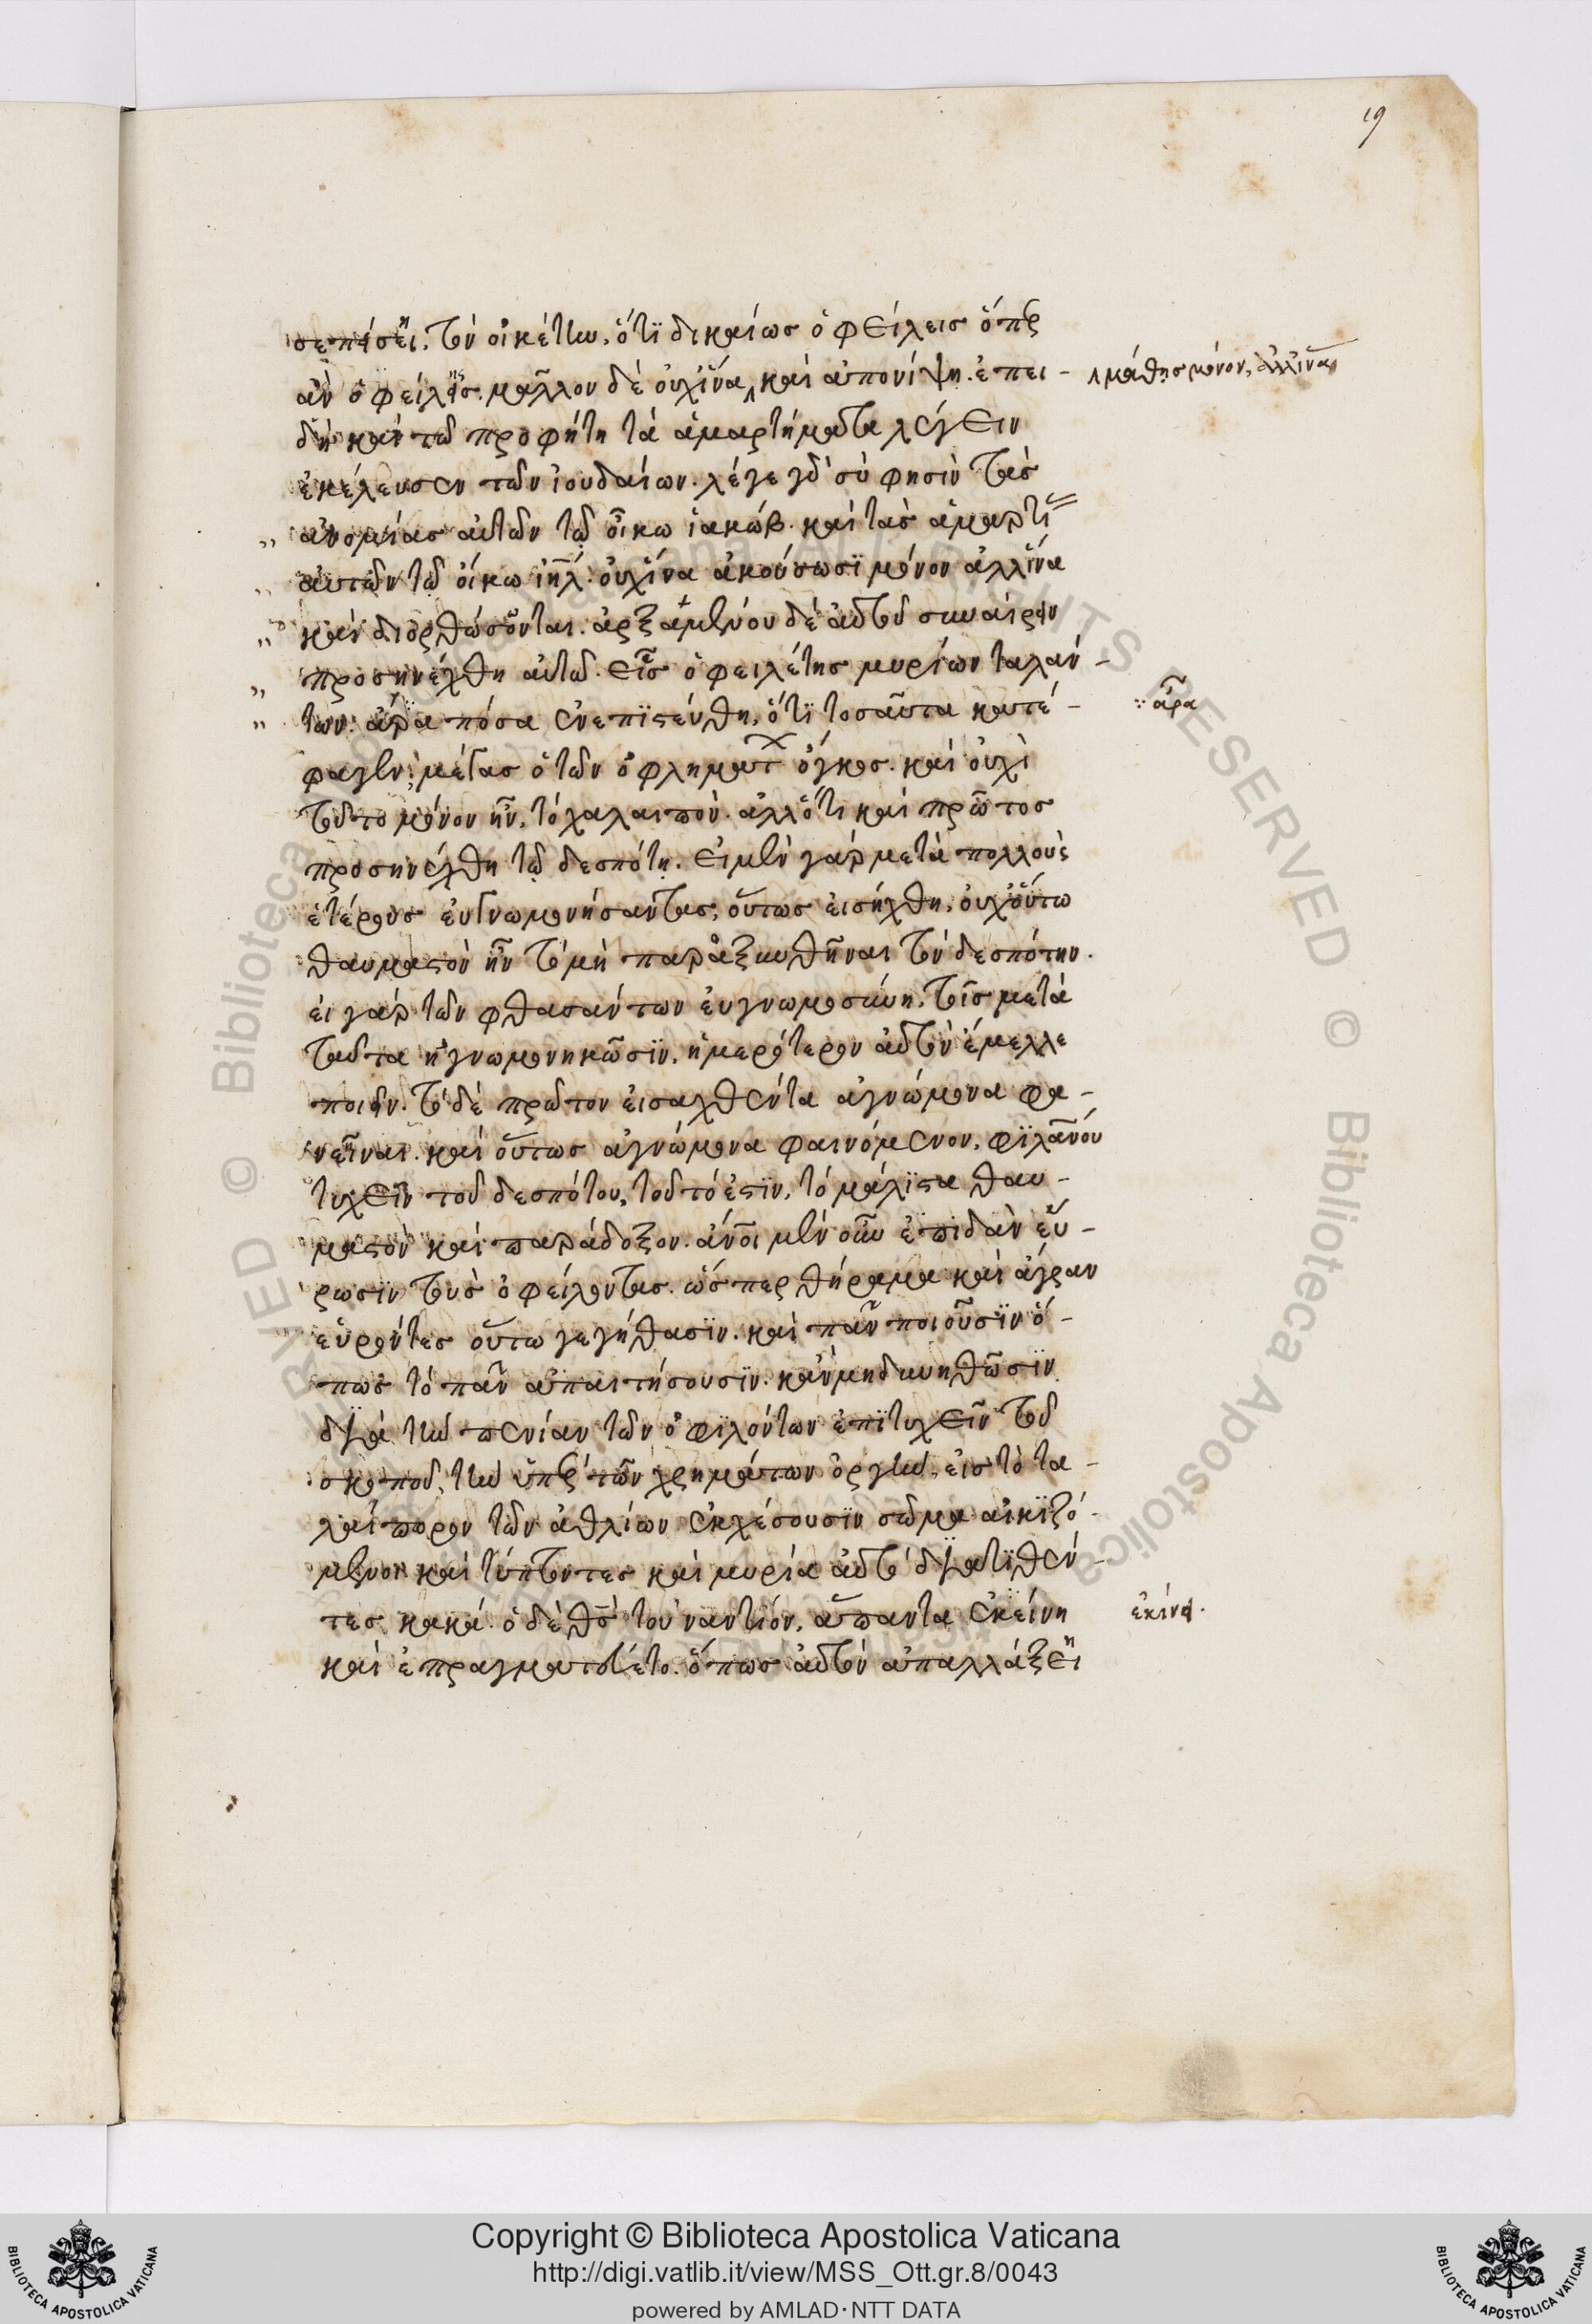 19
σε πείσει τὸν οἰκέτην, ὅτι δικαίως ὀφείλεις ὅπερ
ἂν ὀφείλῃς. μᾶλλον δὲ οὐχ ἵνα καὶ ἀπονίψῃ. ἐπει-
μάθῃς μόνον, ἀλλ' ἵνα
δὴ καὶ τῷ προφήτῃ τὰ ἁμαρτήματα λέγειν
ἐκέλευσεν τῶν ἰουδαίων. λέγε γὰρ σὺ φησὶν τὰς
ἀνομίας αὐτῶν τῷ οἴκω ἰακώβ. καὶ τὰς ἁμαρτί
αὐτῶν τῷ οἴκω ιηλ. οὐχ ἵνα ἀκούσωσι μόνον ἀλλ' ἵνα
καὶ διορθώσονται. ἀρξαμένου δὲ αὐτοῦ συναίρειν
προσηνέχθη αὐτῷ. εἷς ὀφειλέτης μυρίων ταλάν-
των. ἄρα πόσα ἐνεπιστεύθη, ὅτι τοσαῦτα κατέ-
ἆρα
φαγεν; μέγας ὁ τῶν ὀφλημάτ ὄγκος. καὶ οὐχὶ
τοῦτο μόνον ἦν, τὸ χαλαιπὸν. ἀλλ' ὅτι καὶ πρῶτος
προσηνέχθη τῷ δεσπότῃ. εἰ μὲν γὰρ μετὰ πολλοὺς
ἑτέρους εὐγνωμονήσαντας, οὕτως εἰσήχθη, οὐχ οὕτω
θαυμαστὸν ἦν τὸ μὴ παροξυνθῆναι τὸν δεσπότην.
εἰ γὰρ τῶν φθασάντων εὐγνωμοσύνη, τοῖς μετὰ
ταῦτα ἠγνωμονηκῶσιν, ἡμερότερον αὐτὸν ἔμελλε
ποιεῖν. τὸ δὲ πρῶτον εἰσαχθέντα ἀγνώμονα φα-
νεῖναι. καὶ οὕτως ἀγνώμονα φαινόμενον, φιλανου
τυχεῖν τοῦ δεσπότου, τοῦτό ἐστιν, τὸ μάλιστα θαυ-
μαστὸν καὶ παράδοξον. ἄνοι μὲν οὖν ἐπιδὰν εὕ-
ρωσιν τοὺς ὀφείλοντας. ὥσπερ θήραμα καὶ ἄγραν
εὑρόντες οὕτω γεγήθασιν. καὶ πᾶν ποιοῦσιν ὅ-
πως τὸ πᾶν ἀπαιτήσουσιν. κἂν μὴ δυνηθῶσιν
διὰ τὴν πενίαν τῶν ὀφιλόντων ἐπιτυχεῖν τοῦ
σκοποῦ, τὴν ὑπὲρ τῶν χρημάτων ὀργὴν, εἰς τὸ τα-
λαίπορον τῶν ἀθλίων ἐκχέουσιν σῶμα αἰκιζό-
μενοι καὶ τύπτοντες καὶ μυρία αὐτὸ διατιθέν-
τες κακά. ὁ δὲ θς τουναντίον, ἅπαντα ἐκείνη
ἐκίνει.
καὶ ἐπραγματεύετο. ὅπως αὐτὸν ἀπαλλάξει
Copyright © Biblioteca Apostolica Vaticana
http://digi.vatlib.it/view/MSS_Ott.gr.8/0043
powered by AMLAD·NTT DATA